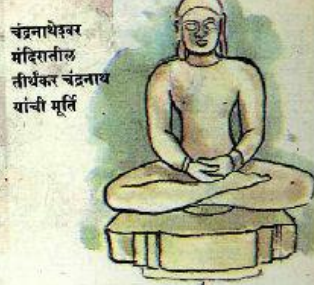 चंद्रनाथेश्वर
मंदिरातील
तीर्थंकर चंद्रनाथ
यांची मूर्ति